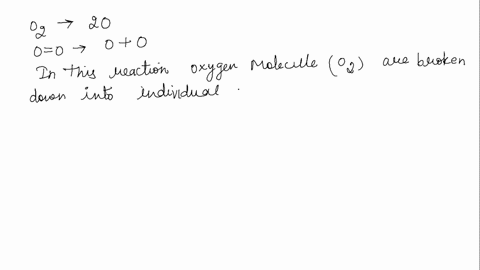 O₂ → 2O
O=O → O + O
In this reaction oxygen Molecule (O₂) are broken
down into individual .